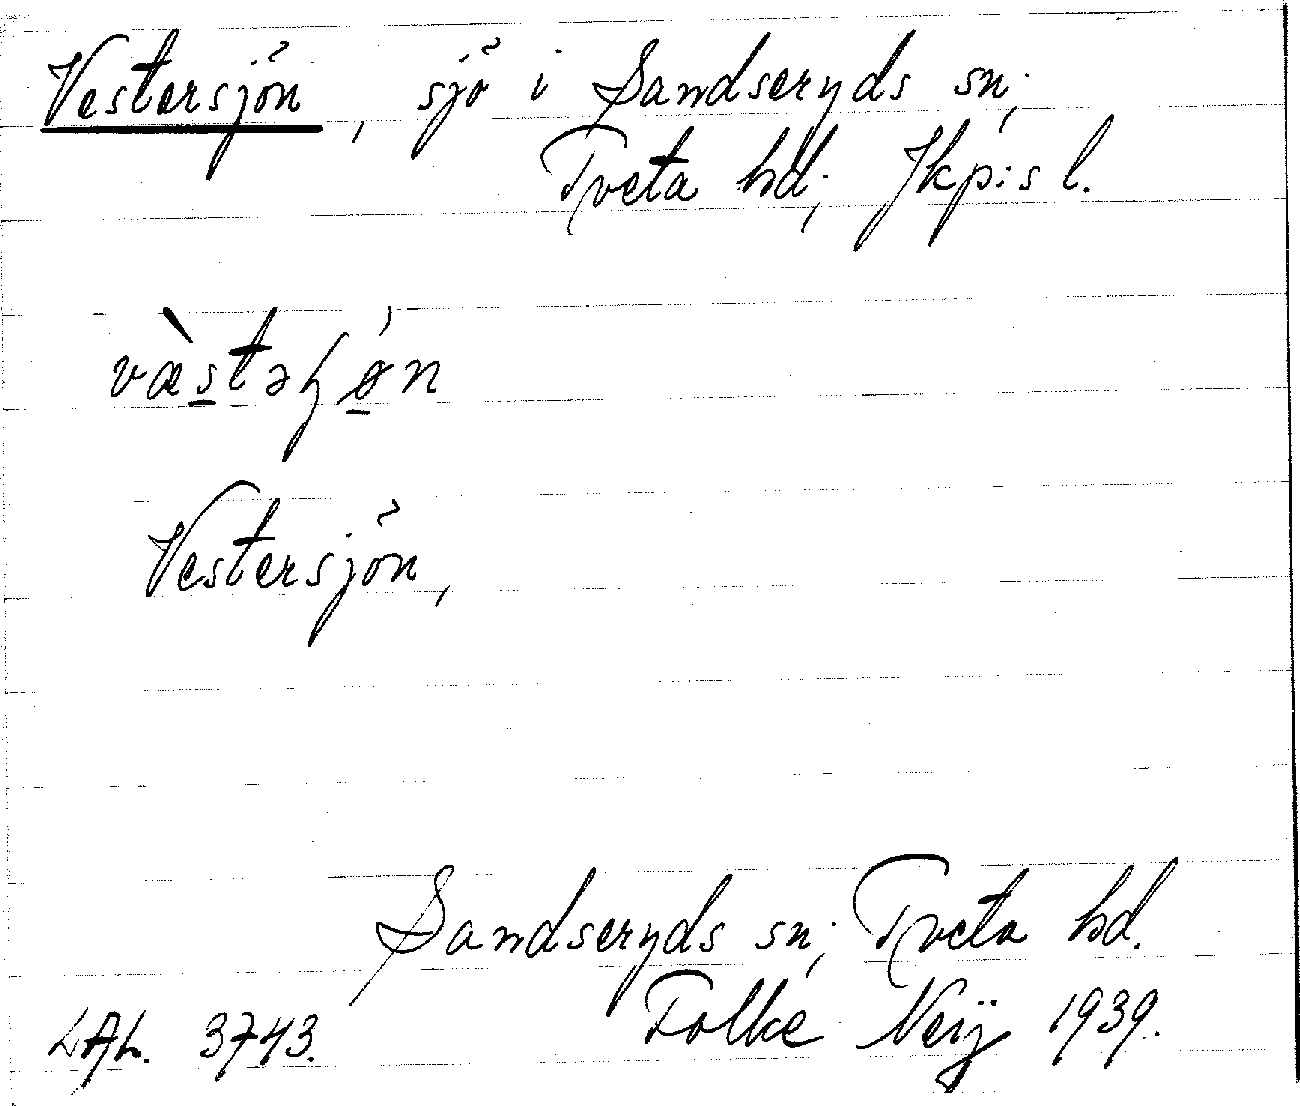 Vestersjön, sjö i Sandseryds sn;
Tveta hd; Jkp:s l.
væ̀stəɧø̀n
Vestersjön,
Sandseryds sn; Tveta hd.
LAL. 3743. Folke Neij 1939.